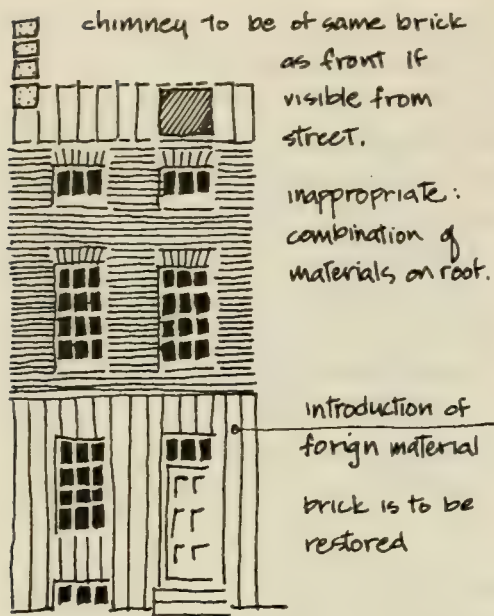 chimney to be of same brick
as front if
visible from
street.
inappropriate:
combination of
materials on roof.
introduction of
forign material
brick is to be
restored